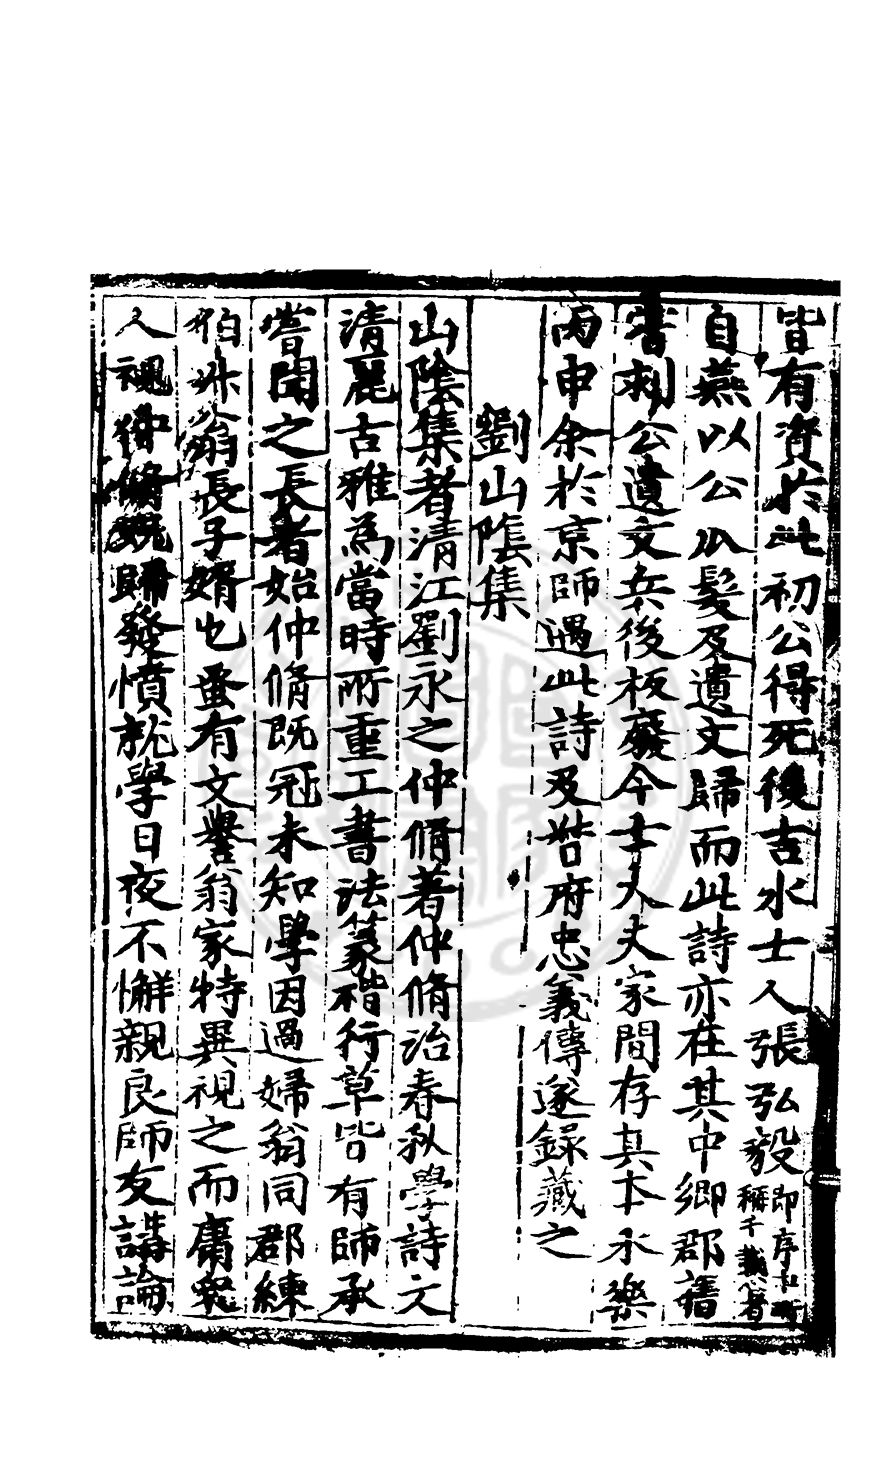 皆有資於此初公得死後吉水士人張弘毅即序中所稱千載心者
自燕以公爪髮及遺文歸而此詩亦在其中鄉郡舊
嘗刻公遺文兵後板廢今士大夫家間存其本永樂
丙申余於京師遇此詩及督府忠義傳遂錄藏之
劉山陰集
山陰集者清江劉永之仲脩著仲脩治春秋學詩文
清麗古雅為當時所重工書法篆楷行草皆有師承
嘗聞之長者始仲脩既冠未知學因過婦翁同郡練
伯升翁長子婿也蚤有文譽翁家特異視之而庸衆
人視仲脩既歸發憤就學日夜不懈親良師友講論